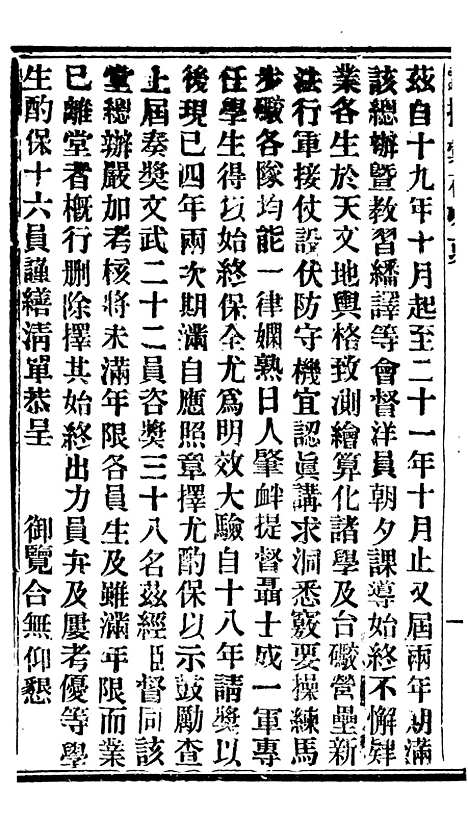 茲自十九年十月起至二十一年十月止又屆兩年期滿
該總辦暨教習繙譯等會督洋員朝夕課導始終不懈肄
業各生於天文地輿格致測繪算化諸學及台礮營壘新
法行軍接仗設伏防守機宜認眞講求洞悉竅要操練馬
步礮各隊均能一律嫻熟日人肇衅提督聶士成一軍專
任學生得以始終保全尤爲明效大驗自十八年請獎以
後現已四年兩次期滿自應照章擇尤酌保以示鼓勵查
上屆奏獎文武二十二員咨獎三十八名茲經臣督同該
堂總辦嚴加考核將未滿年限各員生及雖滿年限而業
已離堂者槪行删除擇其始終出力員弁及屢考優等學
生酌保十六員謹繕清單恭呈 御覽合無仰懇
一